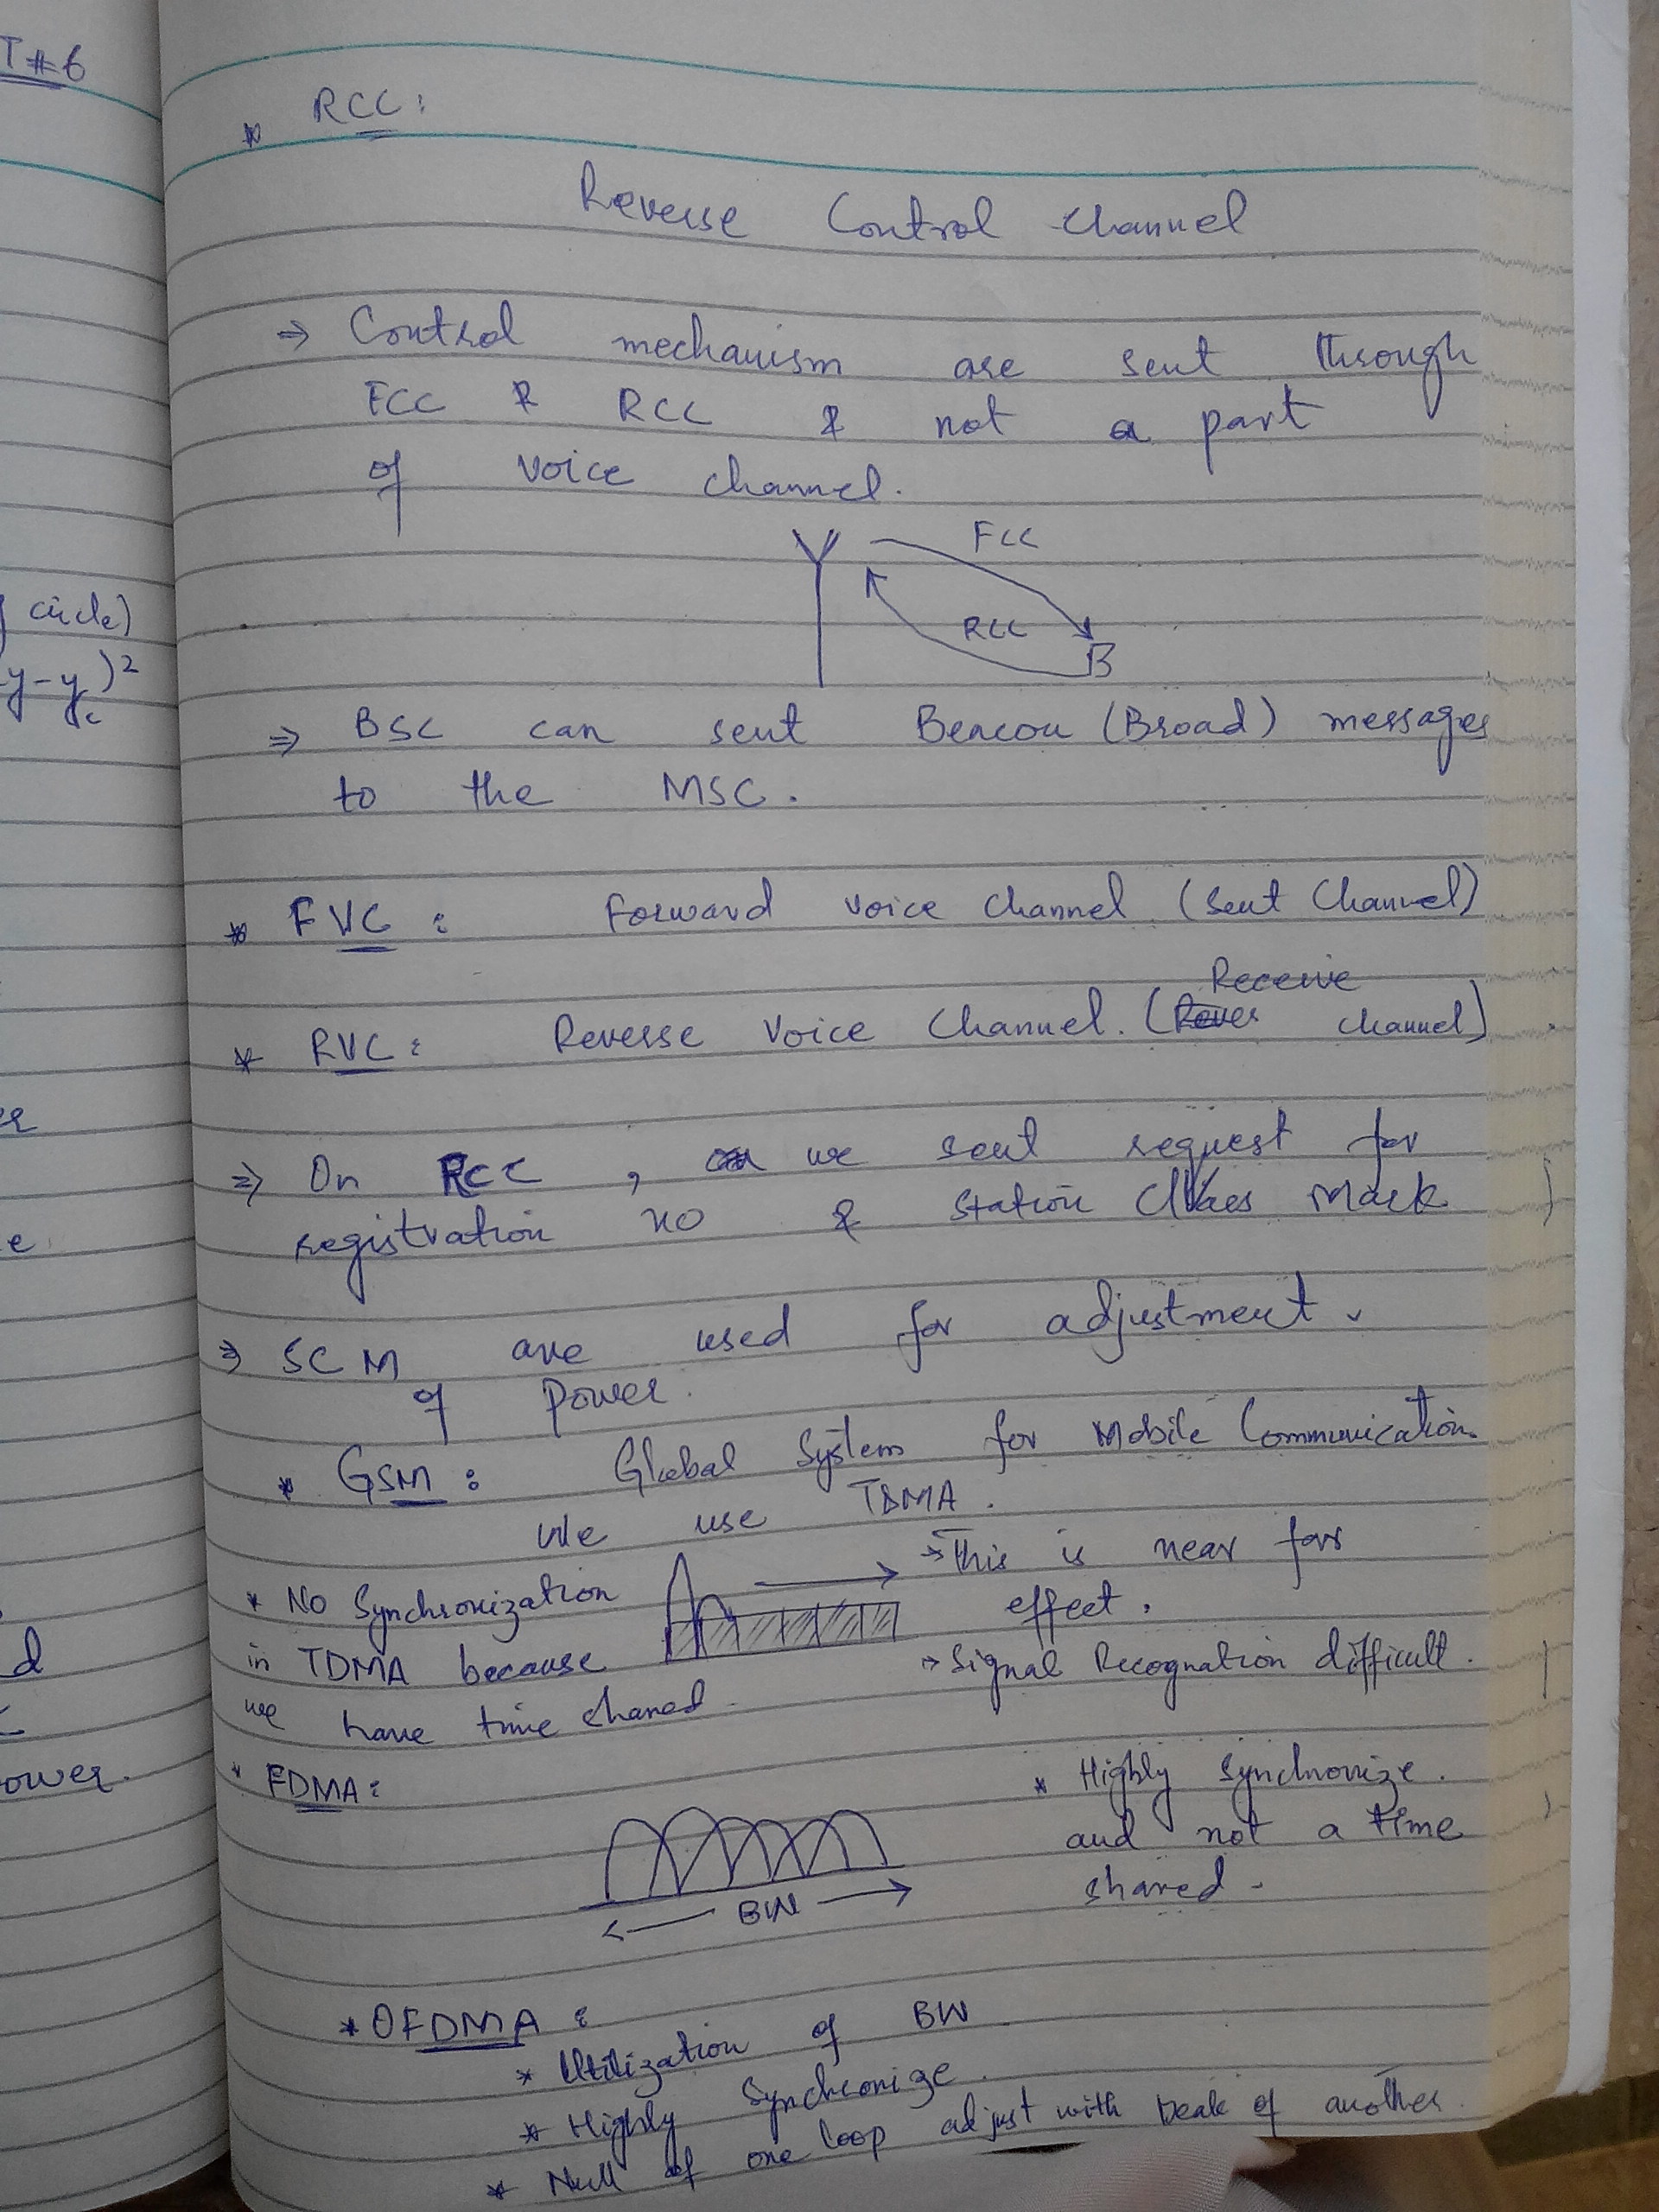 T#6
circle)
y-yc)²
er
e
d
ower.
* RCC:
Reverse Control Channel
⇒ Control mechanism are sent through
FCC & RCC & not a part
of voice channel.
FCC
RCC
⇒ BSC can sent Beacon (Broad) messages
to the MSC.
* FVC : Forward voice channel (Sent Channel)
Receive
* RVC: Reverse Voice Channel. (Rever channel)
⇒ On RCC, we sent request for
registration no & Station Class Mark
⇒ SCM are used for adjustment.
of power.
* GSM: Global System for Mobile Communication
We use TDMA.
→ This is near far
effect.
* No Synchronization
in TDMA because
we have time shared.
→ Signal Recognation difficult.
* FDMA:
BW
* Highly Synchronize.
and not a time
shared.
* OFDMA :
* Utilization of BW
* Highly Synchronize.
* Null of one loop adjust with peak of another